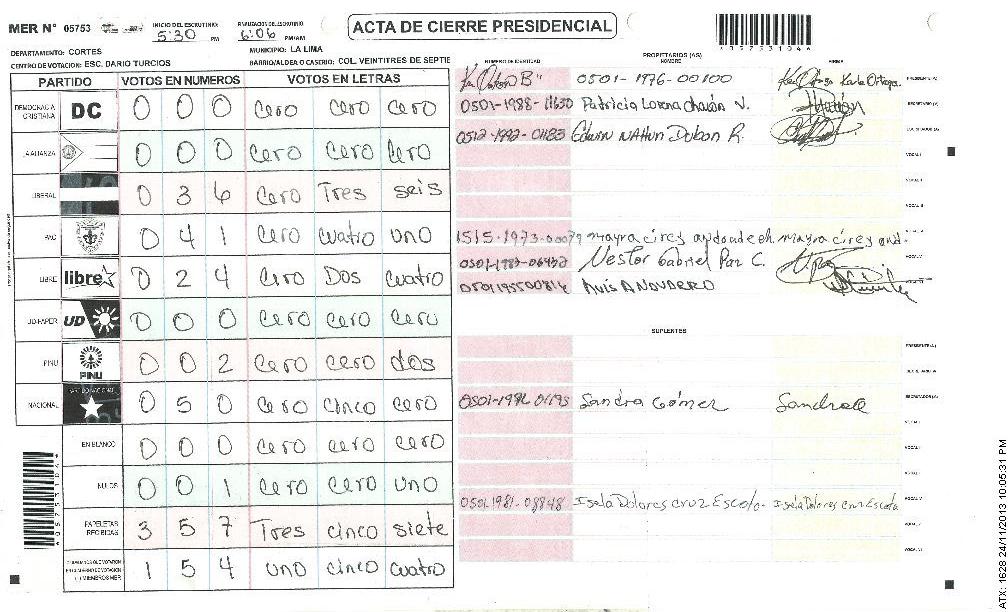 MER N° 05753
INICIO DEL ESCRUTINIO: 5:30 PM
FINALIZACION DEL ESCRUTINIO 6:06 PM/AM
ACTA DE CIERRE PRESIDENCIAL
DEPARTAMENTO: CORTES
MUNICIPIO: LA LIMA
CENTRO DE VOTACION: ESC. DARIO TURCIOS
BARRIO/ALDEA O CASERIO: COL VEINTITRES DE SEPTIE
PARTIDO VOTOS EN NUMEROS VOTOS EN LETRAS
DEMOCRACIA CRISTIANA DC 0 0 0 Cero Cero Cero
LA ALIANZA 0 0 0 Cero Cero Cero
LIBERAL 0 3 6 Cero Tres seis
PAC 0 4 1 Cero cuatro uno
LIBRE libre 0 2 4 Cero Dos cuatro
UD-FAPER UD 0 0 0 Cero Cero Cero
PINU PINU 0 0 2 Cero cero dos
NACIONAL 0 5 0 Cero cinco cero
EN BLANCO 0 0 0 Cero cero cero
NULOS 0 0 1 Cero Cero uno
PAPELETAS RECIBIDAS 3 5 7 Tres cinco siete
1 5 4 uno cinco cuatro
PROPIETARIOS (AS)
NUMERO DE IDENTIDAD NOMBRE FIRMA
0501-1976-00100 Karla Ortega PRESIDENTE (A)
0501-1988-11630 Patricia Lorena chavón V. SECRETARIO (A)
0512-1992-01183 Edwin NAHUN Dubon R. ESCRUTADOR (A)
VOCAL I
VOCAL II
VOCAL III
1515-1973-00079 mayra cires
Nestor Gabriel Paz C.
SUPLENTES
PRESIDENTE (A)
SECRETARIO (A)
0501-1986 01195 Sandra Gómez Sandra G ESCRUTADOR (A)
VOCAL I
VOCAL II
VOCAL III
0501-1981-08848 Isela Dolores Cruz Escoto Isela Dolores Cruz Escoto VOCAL IV
VOCAL V
VOCAL VI
ATX: 1628 24/11/2013 10:05:31 PM